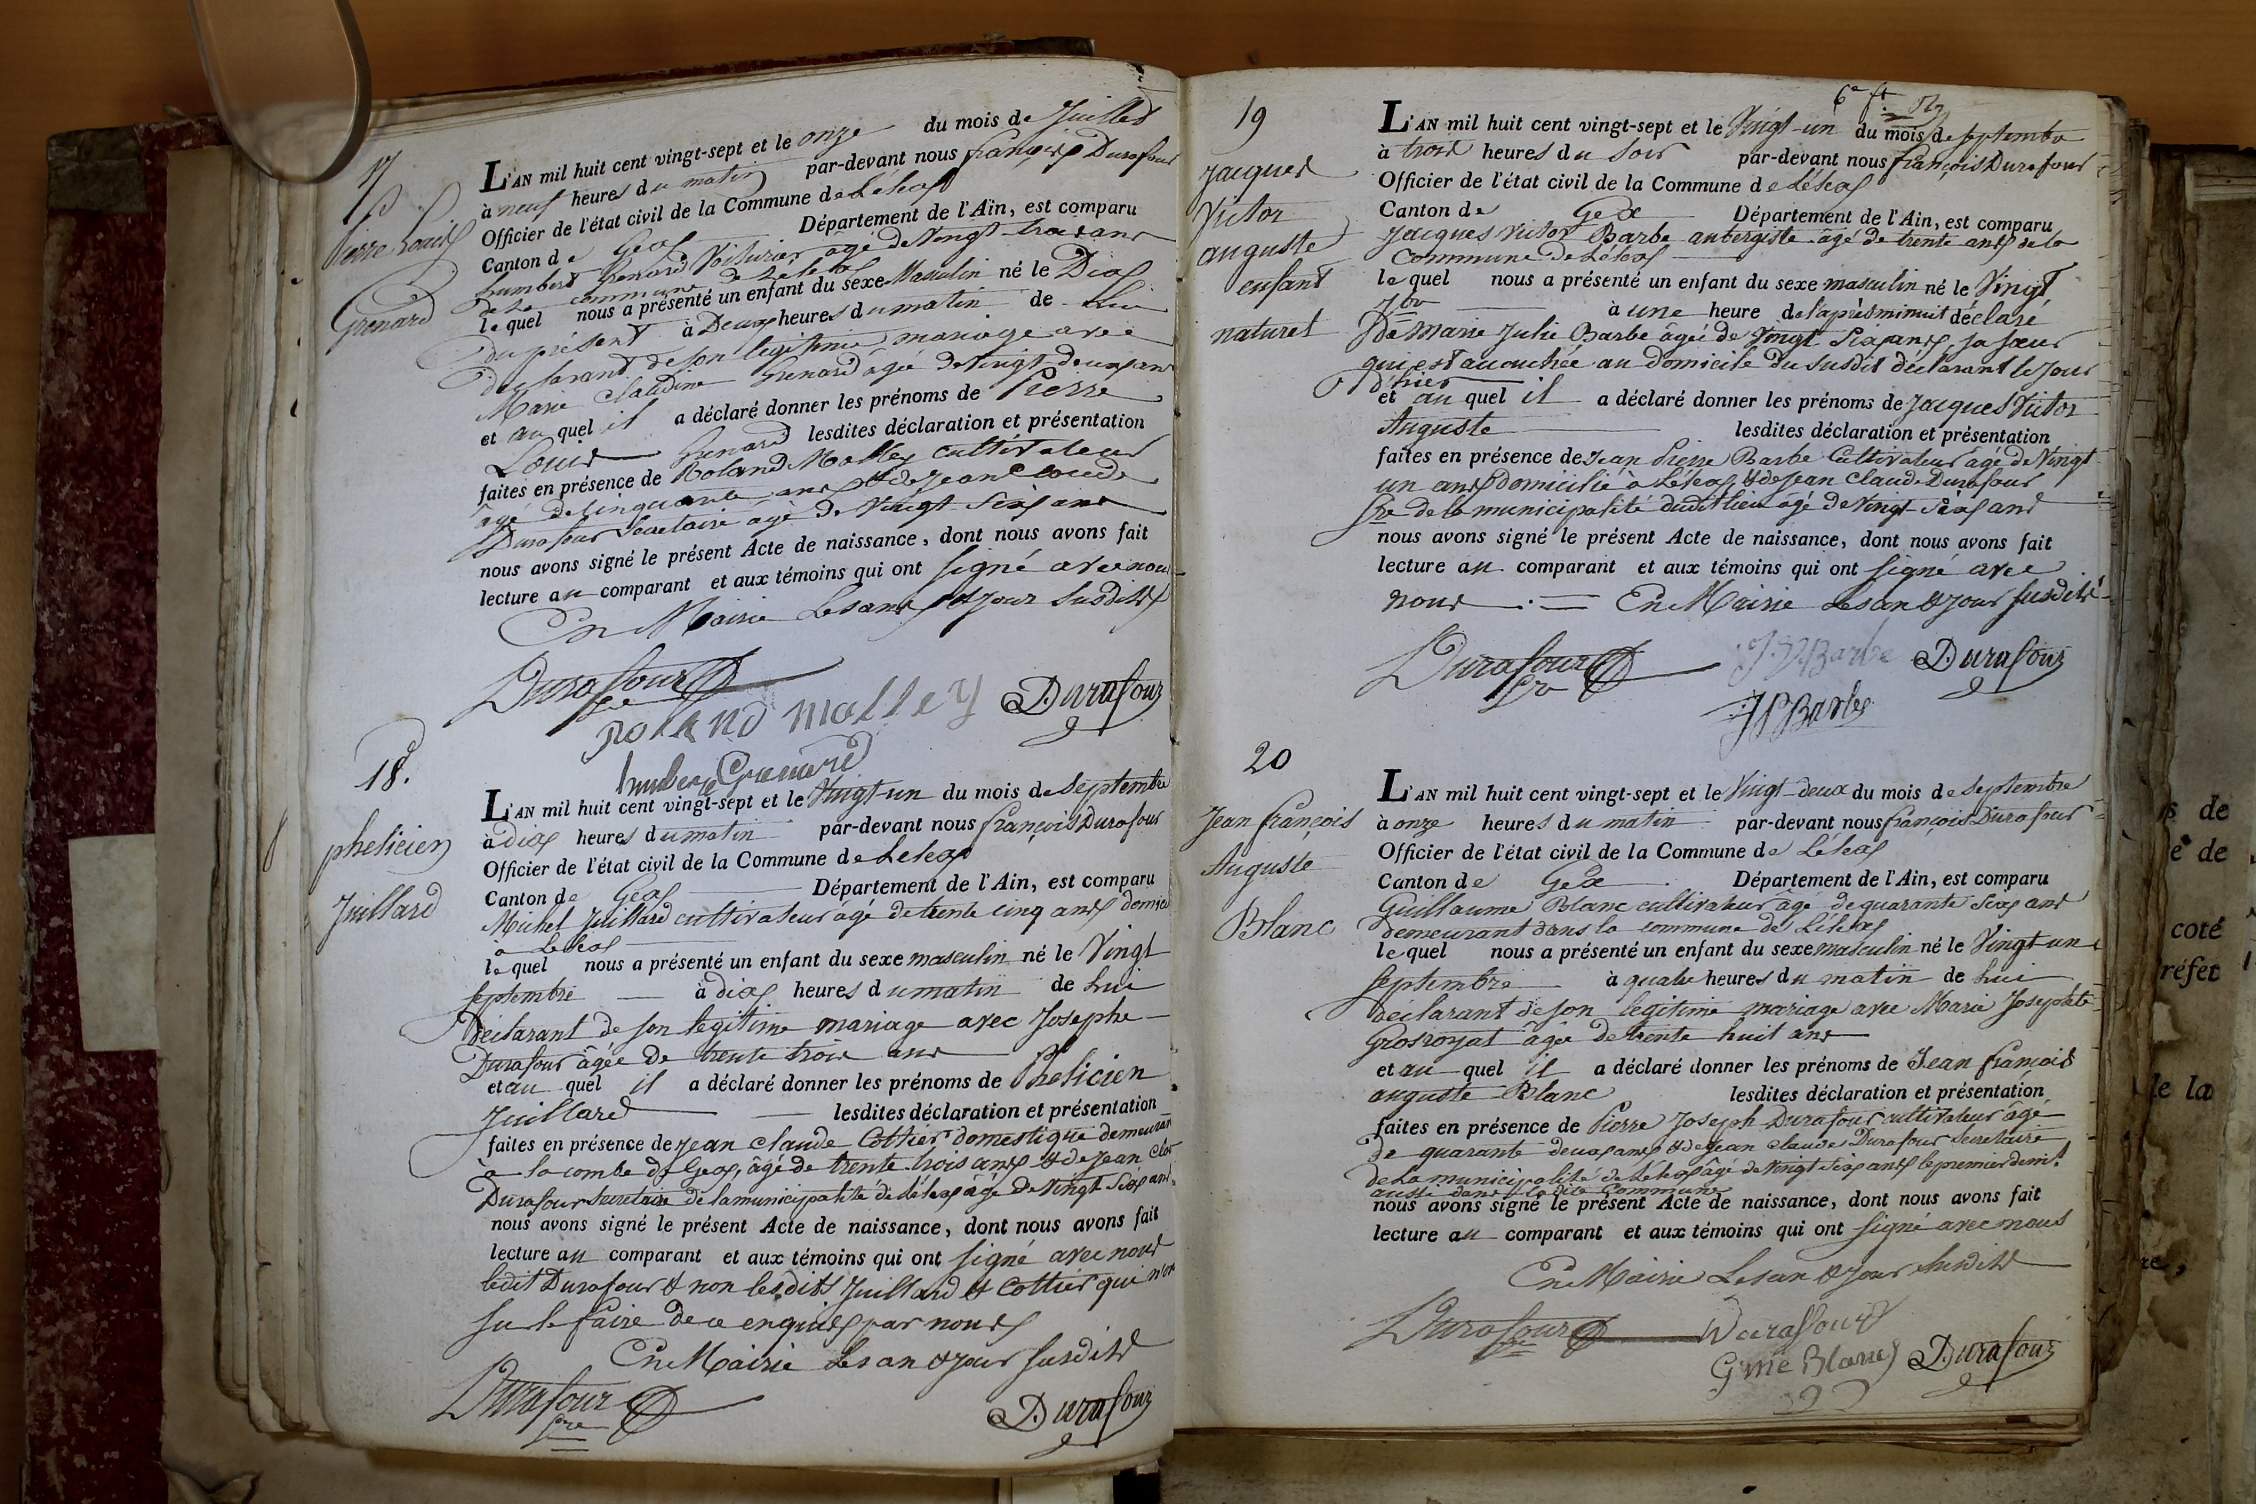 17
Pierre Louis
Grenard
L'AN mil huit cent vingt-sept et le onze du mois de Juillet
à neuf heures du matin par-devant nous françois Durafour
Officier de l'état civil de la Commune de Léléax
Canton de Gex Département de l'Ain, est comparu
humbert Grenard Voiturier âgé de Vingt trois ans
de la commune de Léléax
lequel nous a présenté un enfant du sexe Masculin né le Dix
du présent à Deux heures du matin de lui
déclarant de son légitime mariage avec
Marie Claudine Grenard âgée de Vingt deux ans
et au quel il a déclaré donner les prénoms de Pierre
Louis Grenard lesdites déclaration et présentation
faites en présence de Roland Molley cultivateur
âgé de Cinquante ans & de Jean Claude
Durafour Secrétaire âgé de Vingt Six ans
nous avons signé le présent Acte de naissance, dont nous avons fait
lecture au comparant et aux témoins qui ont signé avec nous
En Mairie Les ans & jour susdits
Durafour
roland molley
Durafour
humbert Grenard
18.
phelicien
Juillard
L'AN mil huit cent vingt-sept et le Vingt-un du mois de septembre
à dix heures du matin par-devant nous françois Durafour
Officier de l'état civil de la Commune de Léléax
Canton de Gex Département de l'Ain, est comparu
Michel Juillard cultivateur âgé de trente cinq ans domicié
à Léléax
lequel nous a présenté un enfant du sexe masculin né le Vingt
septembre à dix heures du matin de lui
déclarant de son légitime mariage avec Josephe
Durafour âgée de trente trois ans
et au quel il a déclaré donner les prénoms de Phelicien
Juillard lesdites déclaration et présentation
faites en présence de jean claude Cottier domestique demeurant
à la combe de Gex, âgé de trente-trois ans & de Jean Cloe
Durafour secrétaire de la municipalité de Léléax âgé de Vingt Six ans
nous avons signé le présent Acte de naissance, dont nous avons fait
lecture au comparant et aux témoins qui ont signé avec nous
ledit Durafour & non les dits Juillard & Cottier qui n'on
su le faire de ce enquis par nous
En Mairie Les an & jour susdits
Durafour
Durafour
6e ft
19
Jacques
Victor
auguste
enfant
naturel
L'AN mil huit cent vingt-sept et le Vingt-un du mois de septembre
à trois heures du soir par-devant nous françois Durafour
Officier de l'état civil de la Commune de Léléax
Canton de Gex Département de l'Ain, est comparu
Jacques Victor Barbe aubergiste âgé de trente ans de la
Commune de Léléax
lequel nous a présenté un enfant du sexe masculin né le Vingt
7bre à une heure de l'après minuit déclaré
De Marie Julie Barbe âgée de Vingt Six ans, sa sœur
qui est acouchée au domicile du susdit déclarant le jour
d'hier
et au quel il a déclaré donner les prénoms de Jacques Victor
Auguste lesdites déclaration et présentation
faites en présence de Jean Pierre Barbe Cultivateur âgé de Vingt
un ans Domicilié à Léléax & de Jean Claude Durafour
Sre de la municipalité dudit lieu âgé de Vingt Six ans
nous avons signé le présent Acte de naissance, dont nous avons fait
lecture au comparant et aux témoins qui ont signé avec
nous En Mairie Les an & jour susdits
Durafour
J. V. Barbe
Durafour
J P Barbe
20
Jean françois
Auguste
Blanc
L'AN mil huit cent vingt-sept et le Vingt-deux du mois de septembre
à onze heures du matin par-devant nous françois Durafour
Officier de l'état civil de la Commune de Léléax
Canton de Gex Département de l'Ain, est comparu
Guillaume Blanc cultivateur âgé de quarante Six ans
demeurant dans la commune de Léléax
lequel nous a présenté un enfant du sexe masculin né le Vingt-un
septembre à quatre heures du matin de lui
déclarant de son légitime mariage avec Marie Josephte
Grosroyat âgée de trente huit ans
et au quel il a déclaré donner les prénoms de Jean françois
auguste Blanc lesdites déclaration et présentation
faites en présence de Pierre Joseph Durafour cultivateur âgé
de quarante deux ans & de Jean Claude Durafour secrétaire
de la municipalité de Léléax âgé de Vingt Six ans le premier demt
aussi dans la dite Commune
nous avons signé le présent Acte de naissance, dont nous avons fait
lecture au comparant et aux témoins qui ont signé avec nous
En Mairie Les an & jour susdits
Durafour
Durafour
Gme Blanc
Durafour
de
de
coté
réfet
de la